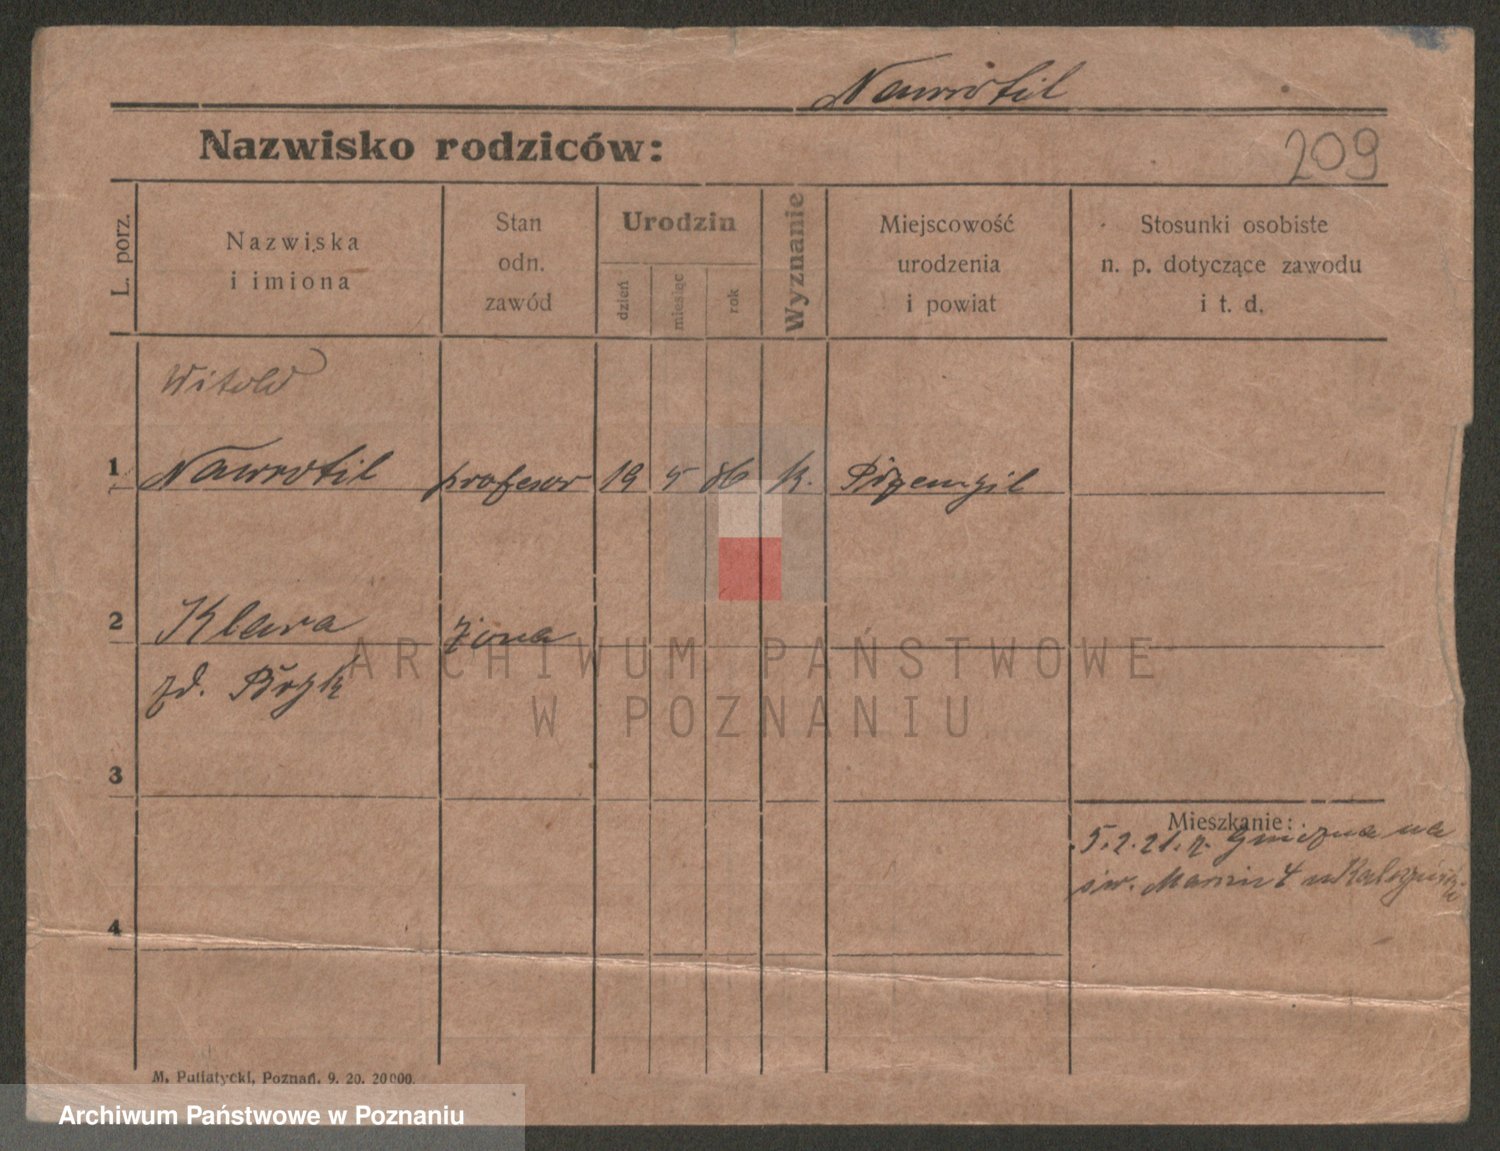 Nawrotil
Nazwisko rodziców:
209
L. porz.
Nazwiska
i imiona
Stan
odn.
zawód
Urodzin
dzień
miesiąc
rok
Wyznanie
Miejscowość
urodzenia
i powiat
Stosunki osobiste
n. p. dotyczące zawodu
i t. d.
Witold
1 Nawrotil profesor 19 5 86 k.
2 Klara żona
zd.
ARCHIWUM PAŃSTWOWE
W POZNANIU
3
Mieszkanie:
5.2.21. z Gniezna na
św. Marcin 4
4
M. Putiatycki, Poznań, 9. 20. 20000.
Archiwum Państwowe w Poznaniu